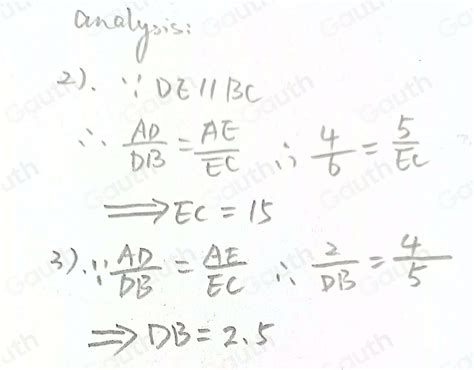 analysis:
2). ∵ DE//BC
∴ AD/DB = AE/EC ∴ 4/6 = 5/EC
⟹ EC = 15
3). ∵ AD/DB = AE/EC ∴ 2/DB = 4/5
⟹ DB = 2.5